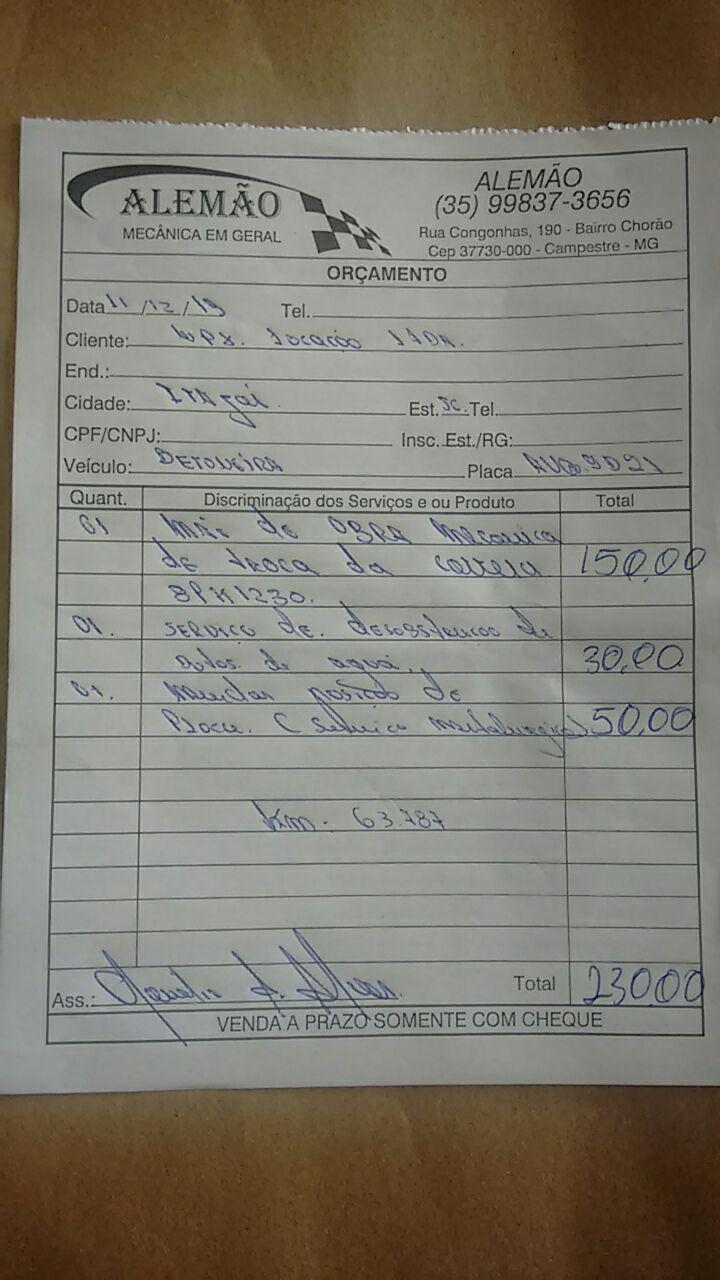 ALEMÃO
MECÂNICA EM GERAL
ALEMÃO
(35) 99837-3656
Rua Congonhas, 190 - Bairro Chorão
Cep 37730-000 - Campestre - MG
ORÇAMENTO
Data 11/12/19 Tel.
Cliente: WPX. Locação LTDA.
End.:
Cidade: Itajaí Est. SC Tel.
CPF/CNPJ: Insc. Est./RG:
Veículo: BETONEIRA Placa 9D21
Quant. Discriminação dos Serviços e ou Produto Total
01 Mão de OBRA Mecanica
de troca da correia 150,00
8PK1230.
01. SERVIÇO de. desobstrucao de
de agua. 30,00
01. Mudar posição de
(Serviço metalurgica) 50,00
Km. 63.787
Ass.: Total 230,00
VENDA A PRAZO SOMENTE COM CHEQUE